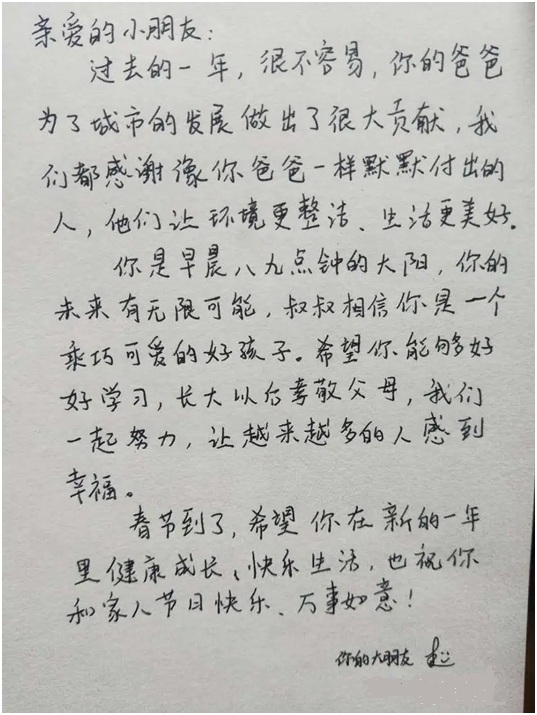 亲爱的小朋友：
过去的一年，很不容易，你的爸爸
为了城市的发展做出了很大贡献，我
们都感谢像你爸爸一样默默付出的
人，他们让环境更整洁、生活更美好。
你是早晨八九点钟的太阳，你的
未来有无限可能，叔叔相信你是一个
乖巧可爱的好孩子。希望你能够好
好学习，长大以后孝敬父母，我们
一起努力，让越来越多的人感到
幸福。
春节到了，希望你在新的一年
里健康成长、快乐生活，也祝你
和家人节日快乐、万事如意！
你的大朋友